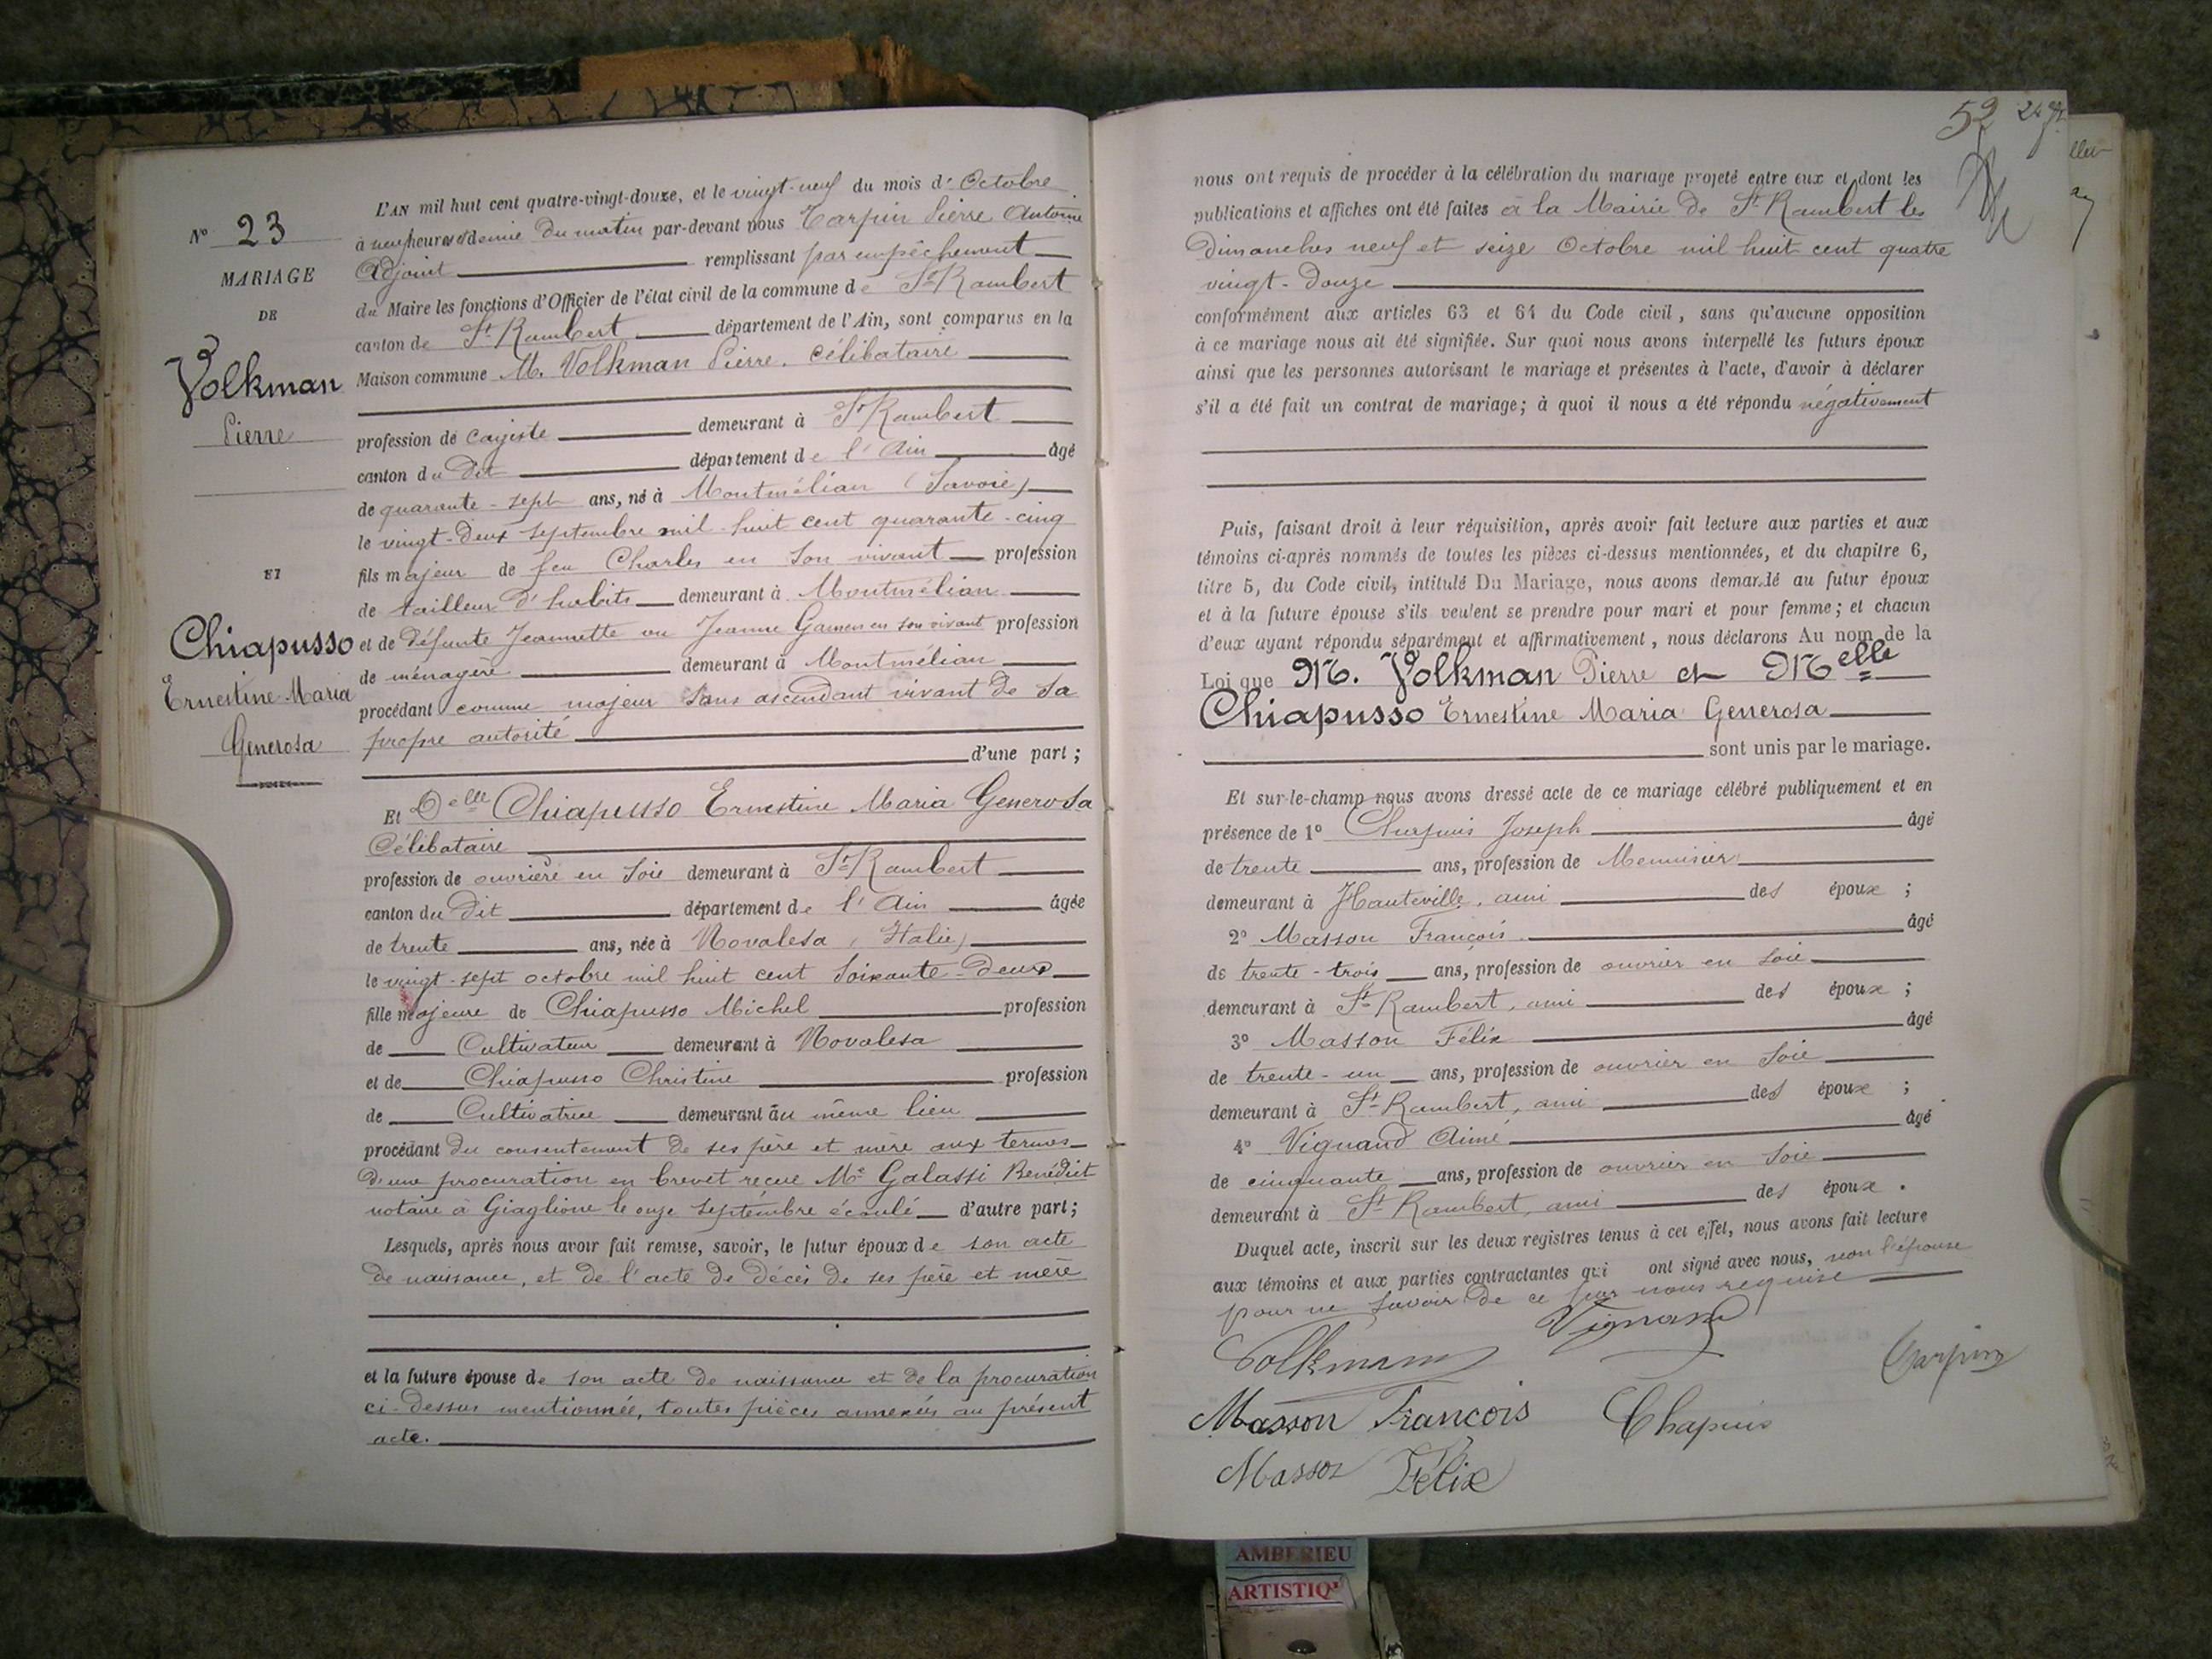 N° 23
MARIAGE
DE
Volkman
Pierre
ET
Chiapusso
Ernestine Maria
Generosa
L'AN mil huit cent quatre-vingt-douze, et le vingt-neuf du mois d'Octobre
à neuf heures et demie du matin par-devant nous Tarpin Pierre Antoine
Adjoint remplissant par empêchement
du Maire les fonctions d'Officier de l'état civil de la commune de St Rambert
canton de St Rambert département de l'Ain, sont comparus en la
Maison commune M. Volkman Pierre, célibataire
profession de demeurant à St Rambert
canton du dit département de l'Ain âgé
de quarante-sept ans, né à Montmélian (Savoie)
le vingt-deux septembre mil huit cent quarante-cinq
fils majeur de feu Charles en son vivant profession
de tailleur d'habits demeurant à Montmélian
et de défunte Jeannette ou Jeanne en son vivant profession
de ménagère demeurant à Montmélian
procédant comme majeur sans ascendant vivant de sa
propre autorité
d'une part ;
Et Delle Chiapusso Ernestine Maria Generosa
Célibataire
profession de ouvrière en soie demeurant à St Rambert
canton du dit département de l'Ain âgée
de trente ans, née à Novalesa (Italie)
le vingt-sept octobre mil huit cent soixante-deux
fille majeure de Chiapusso Michel profession
de Cultivateur demeurant à Novalesa
et de Chiapusso Christine profession
de Cultivatrice demeurant au même lieu
procédant du consentement de ses père et mère aux termes
d'une procuration en brevet reçue Me Galassi Benédict
notaire à Giaglione le onze septembre écoulé d'autre part ;
Lesquels, après nous avoir fait remise, savoir, le futur époux de son acte
de naissance, et de l'acte de décès de ses père et mère
et la future épouse de son acte de naissance et de la procuration
ci-dessus mentionnée, toutes pièces annexées au présent
acte.
52
nous ont requis de procéder à la célébration du mariage projeté entre eux et dont les
publications et affiches ont été faites à la Mairie de St Rambert les
dimanches neuf et seize Octobre mil huit cent quatre
vingt-douze
conformément aux articles 63 et 64 du Code civil, sans qu'aucune opposition
à ce mariage nous ait été signifiée. Sur quoi nous avons interpellé les futurs époux
ainsi que les personnes autorisant le mariage et présentes à l'acte, d'avoir à déclarer
s'il a été fait un contrat de mariage ; à quoi il nous a été répondu négativement
Puis, faisant droit à leur réquisition, après avoir fait lecture aux parties et aux
témoins ci-après nommés de toutes les pièces ci-dessus mentionnées, et du chapitre 6,
titre 5, du Code civil, intitulé Du Mariage, nous avons demandé au futur époux
et à la future épouse s'ils veulent se prendre pour mari et pour femme ; et chacun
d'eux ayant répondu séparément et affirmativement, nous déclarons Au nom de la
Loi que M. Volkman Pierre et Melle
Chiapusso Ernestine Maria Generosa
sont unis par le mariage.
Et sur-le-champ nous avons dressé acte de ce mariage célébré publiquement et en
présence de 1° Chapuis Joseph âgé
de trente ans, profession de Menuisier
demeurant à Hauteville, ami des époux ;
2° Masson François âgé
de trente-trois ans, profession de ouvrier en soie
demeurant à St Rambert, ami des époux ;
3° Masson Félix âgé
de trente-un ans, profession de ouvrier en soie
demeurant à St Rambert, ami des époux ;
4° Vignand Aimé âgé
de cinquante ans, profession de ouvrier en soie
demeurant à St Rambert, ami des époux.
Duquel acte, inscrit sur les deux registres tenus à cet effet, nous avons fait lecture
aux témoins et aux parties contractantes qui ont signé avec nous, non l'épouse
pour ne savoir de ce par nous requise
Volkmann Vignand
Tarpin
Masson François Chapuis
Masson Félix
AMBERIEU
ARTISTIQ